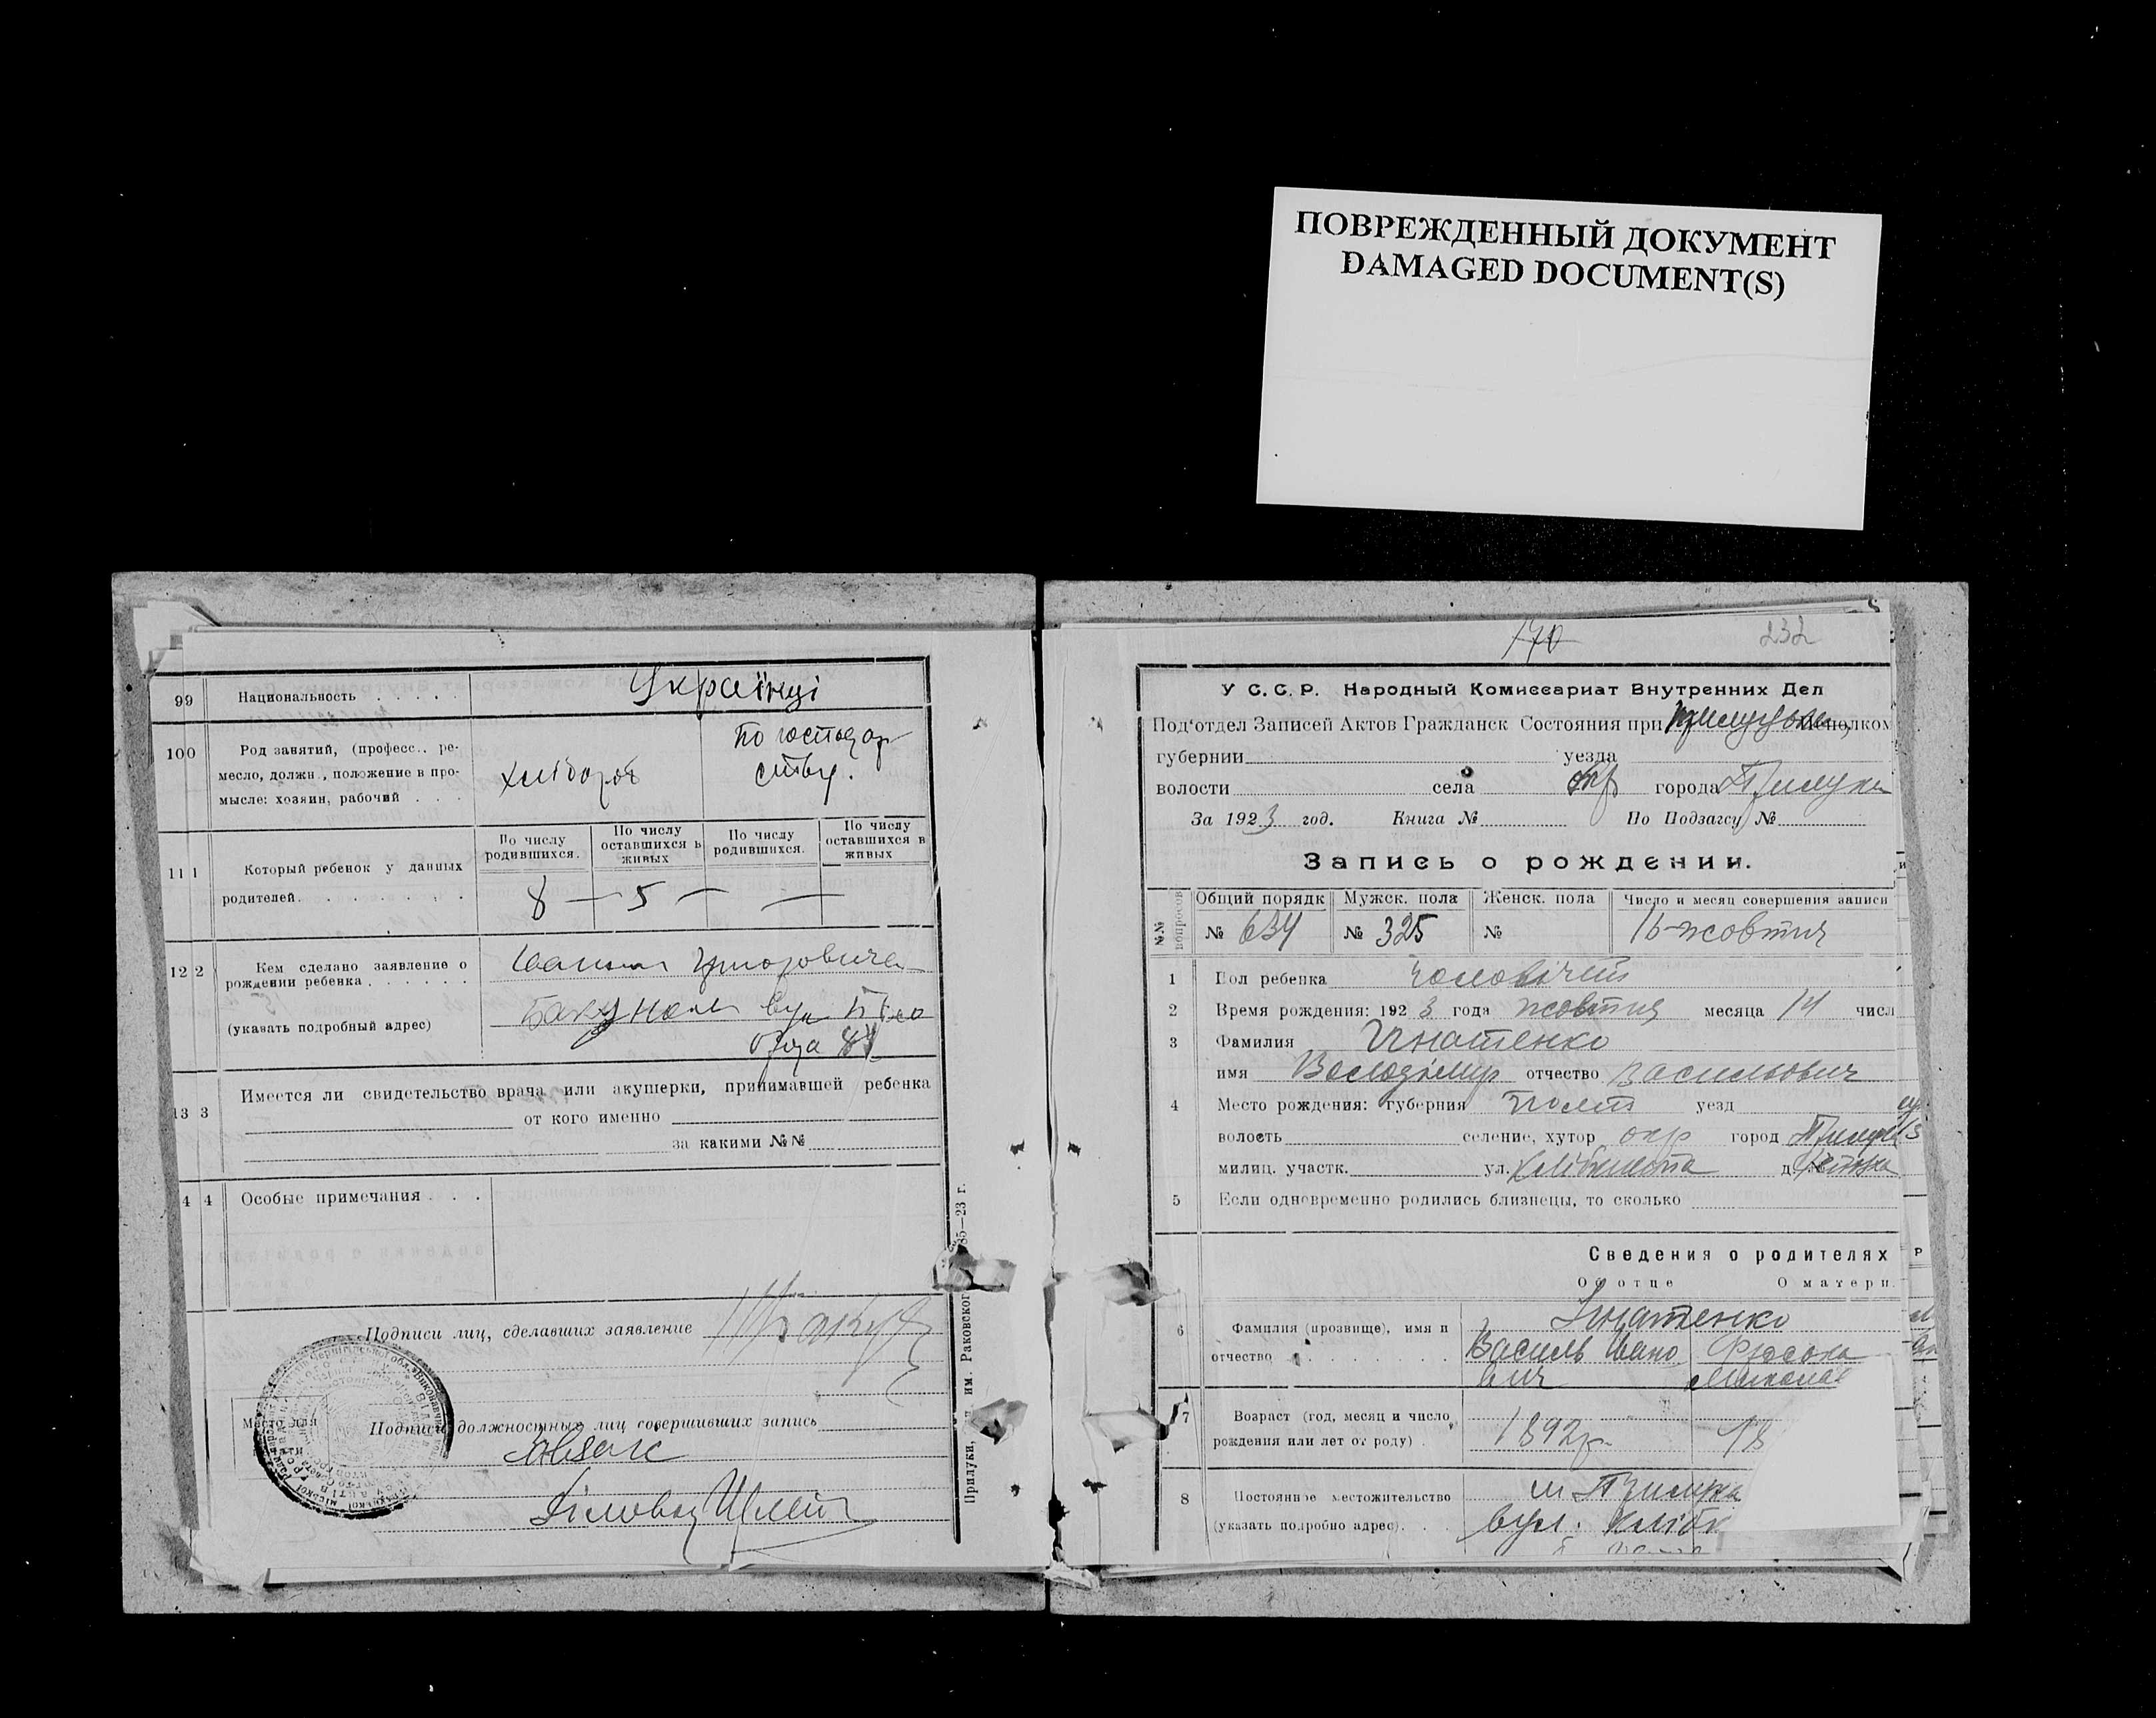 ПОВРЕЖДЕННЫЙ ДОКУМЕНТ
DAMAGED DOCUMENT(S)
99 Национальность Українці
100 Род занятий, (професс.. ре-
месло, должн., положение в про-
мысле: хозяин, рабочий
хлібороб
По господар
ству.
111 Который ребенок у данных
родителей
По числу родившихся.
По числу оставшихся в живых
По числу родившихся.
По числу оставшихся в живых
8 — 5 — —
12 2 Кем сделано заявление о
рождении ребенка
(указать подробный адрес)
вул
84
13 3 Имеется ли свидетельство врача или акушерки, принимавшей ребенка
от кого именно
за какими №№
4 4 Особые примечания
Подписи лиц, сделавших заявление
Место для
Подписи должностных лиц совершивших запись
Діловод
Прилуки, им. Раковского 85—23 г.
170 232
У С. С. Р. Народный Комиссариат Внутренних Дел
Под'отдел Записей Актов Гражданск Состояния при исполком
губернии уезда
волости села окр города Прилуки
За 1923 год. Книга № По Подзагсу №
Запись о рождении.
№№ вопросов
Общий порядк Мужск. пола Женск. пола Число и месяц совершения записи
№ 634 № 325 № 16 жовтня
1 Пол ребенка чоловічий
2 Время рождения: 1923 года жовтня месяца 14 числ
3 Фамилия Ігнатенко
имя Володимир отчество Васильович
4 Место рождения: губерния Полт уезд
волость селение, хутор окр город Прилуки
милиц. участк. ул. д.
5 Если одновременно родились близнецы, то сколько
Сведения о родителях
О отце О матери
6 Фамилия (прозвище), имя и
отчество
Ігнатенко
Василь Івано
вич
7 Возраст (год, месяц и число
рождения или лет от роду)
1892р. 18
8 Постоянное местожительство
(указать подробно адрес)
м Прилуки
вул.